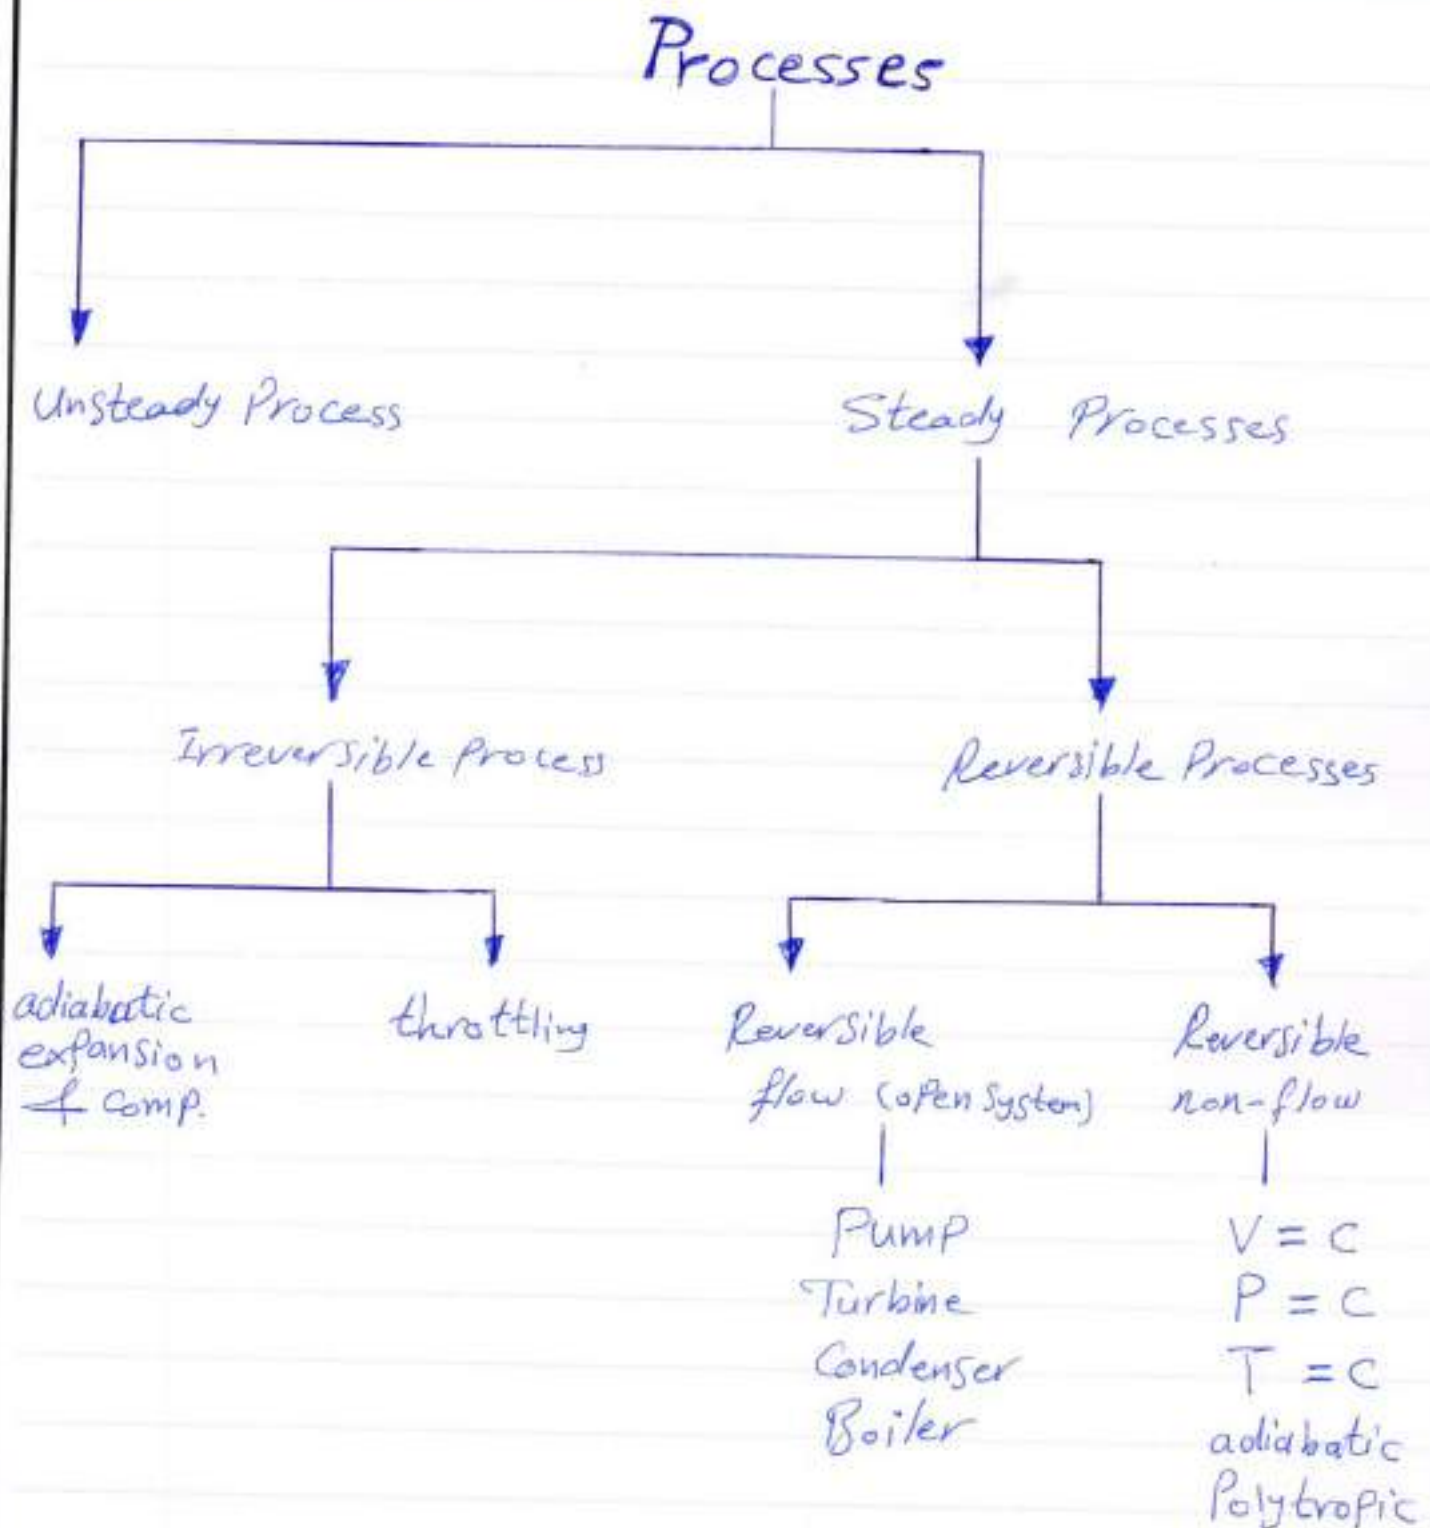 Processes
Unsteady Process
Steady Processes
Irreversible Process
Reversible Processes
adiabatic
expansion
& comp.
throttling
Reversible
flow (open system)
Reversible
non-flow
Pump
Turbine
Condenser
Boiler
V = C
P = C
T = C
adiabatic
Polytropic